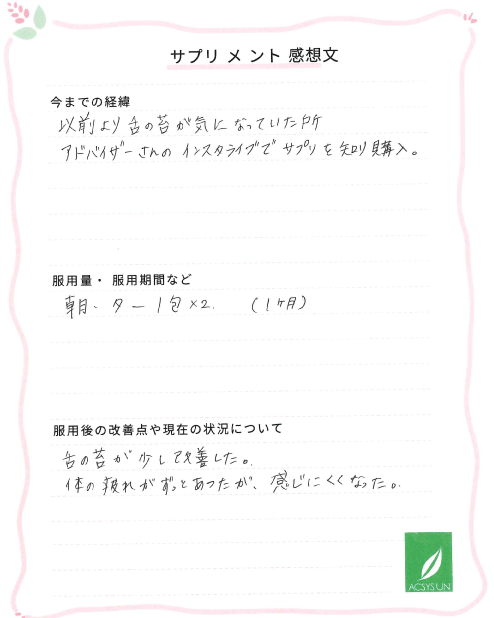 サプリメント感想文
今までの経緯
以前より舌の苔が気になっていた所
アドバイザーさんのインスタライブでサプリを知り購入。
服用量・服用期間など
朝・夕一1包×2. (1ヶ月)
服用後の改善点や現在の状況について
舌の苔が少して改善した。
体の疲れがずっとあったが、感じにくくなった。
ACSYSUN